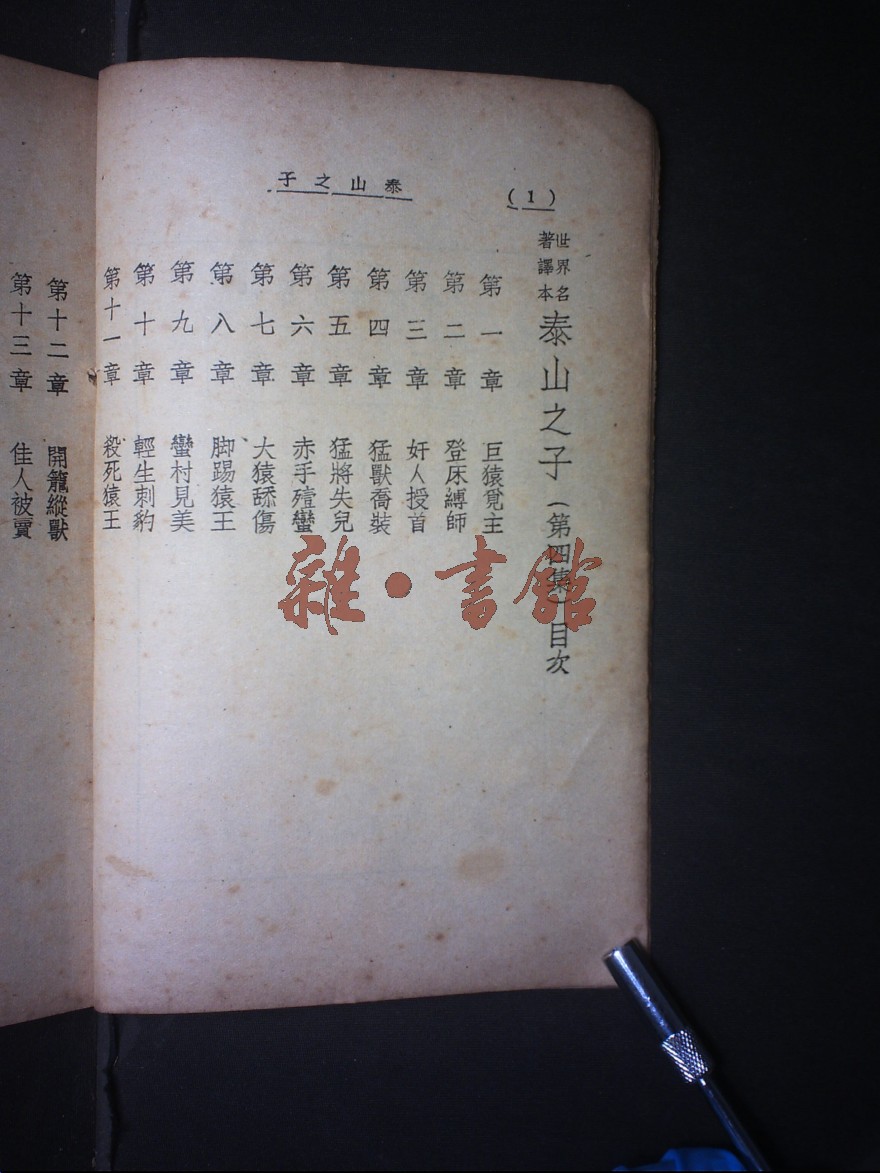 泰山之子
(1)
世界名著譯本
泰山之子(第四集)目次
第一章 巨猿覓主
第二章 登床縛師
第三章 奸人授首
第四章 猛獸喬裝
第五章 猛將失兒
第六章 赤手殪蠻
第七章 大猿舔傷
第八章 脚踢猿王
第九章 蠻村見美
第十章 輕生刺豹
第十一章 殺死猿王
第十二章 開籠縱獸
第十三章 佳人被賣
雜·書館